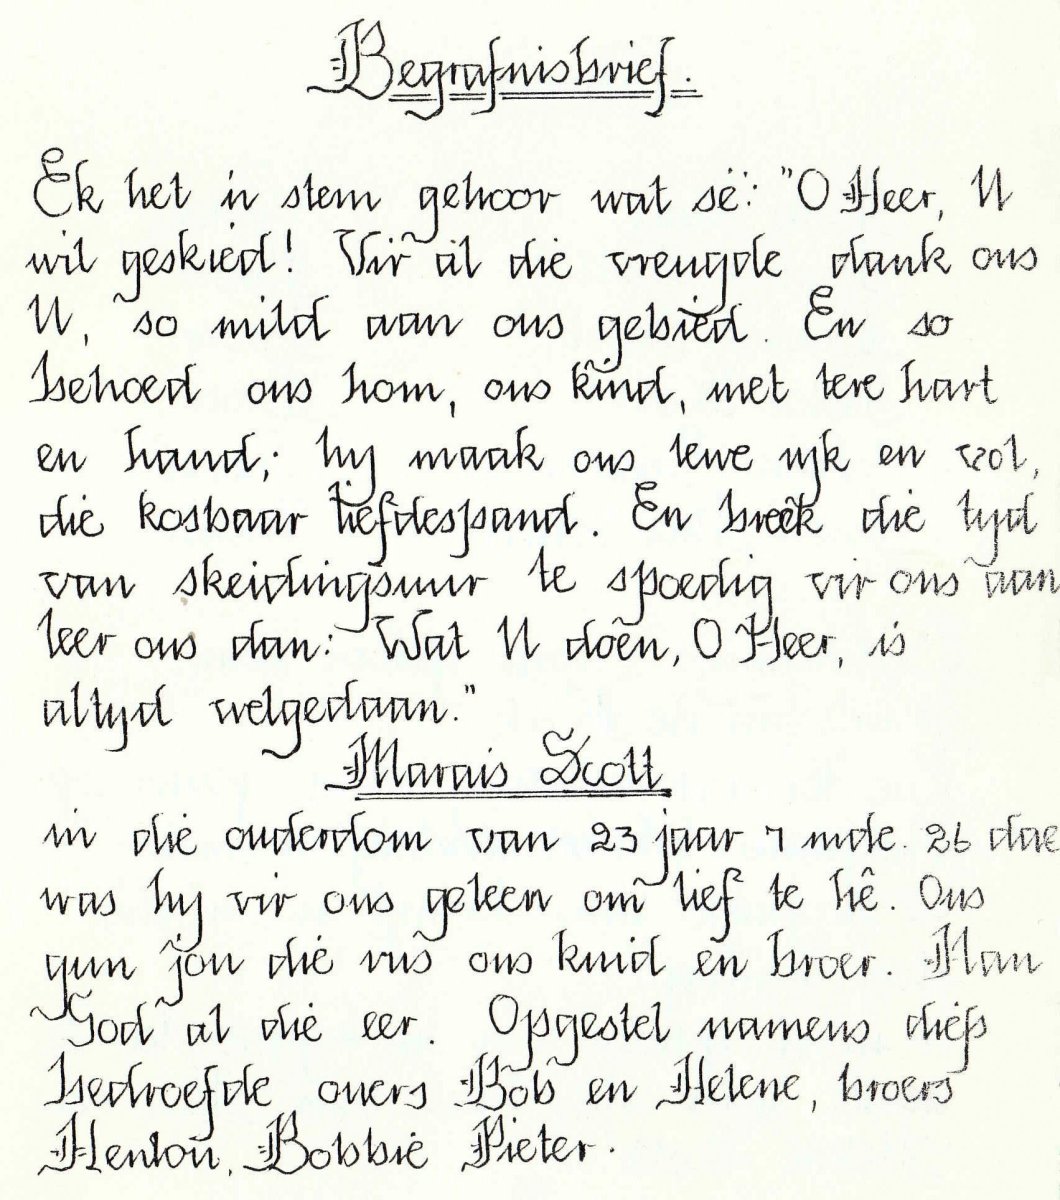 Begrafnisbrief.
Ek het 'n stem gehoor wat sê: "O Heer, U
wil geskied! Vir al die vreugde dank ons
U, so mild aan ons gebied. En so
behoed ons hom, ons kind, met tere hart
en hand; hy maak ons lewe ryk en vol,
die kosbaar liefdespand. En breek die tyd
van skeidingsuur te spoedig vir ons aan
leer ons dan: Wat U doen, O Heer, is
altyd welgedaan."
Marais Scott
in die ouderdom van 23 jaar 7 mde. 26 dae
was hy vir ons geleen om lief te hê. Ons
gun jou die rus ons kind en broer. Aan
God al die eer. Opgestel namens diep
bedroefde ouers Bob en Helene, broers
Henlou, Bobbie Pieter.